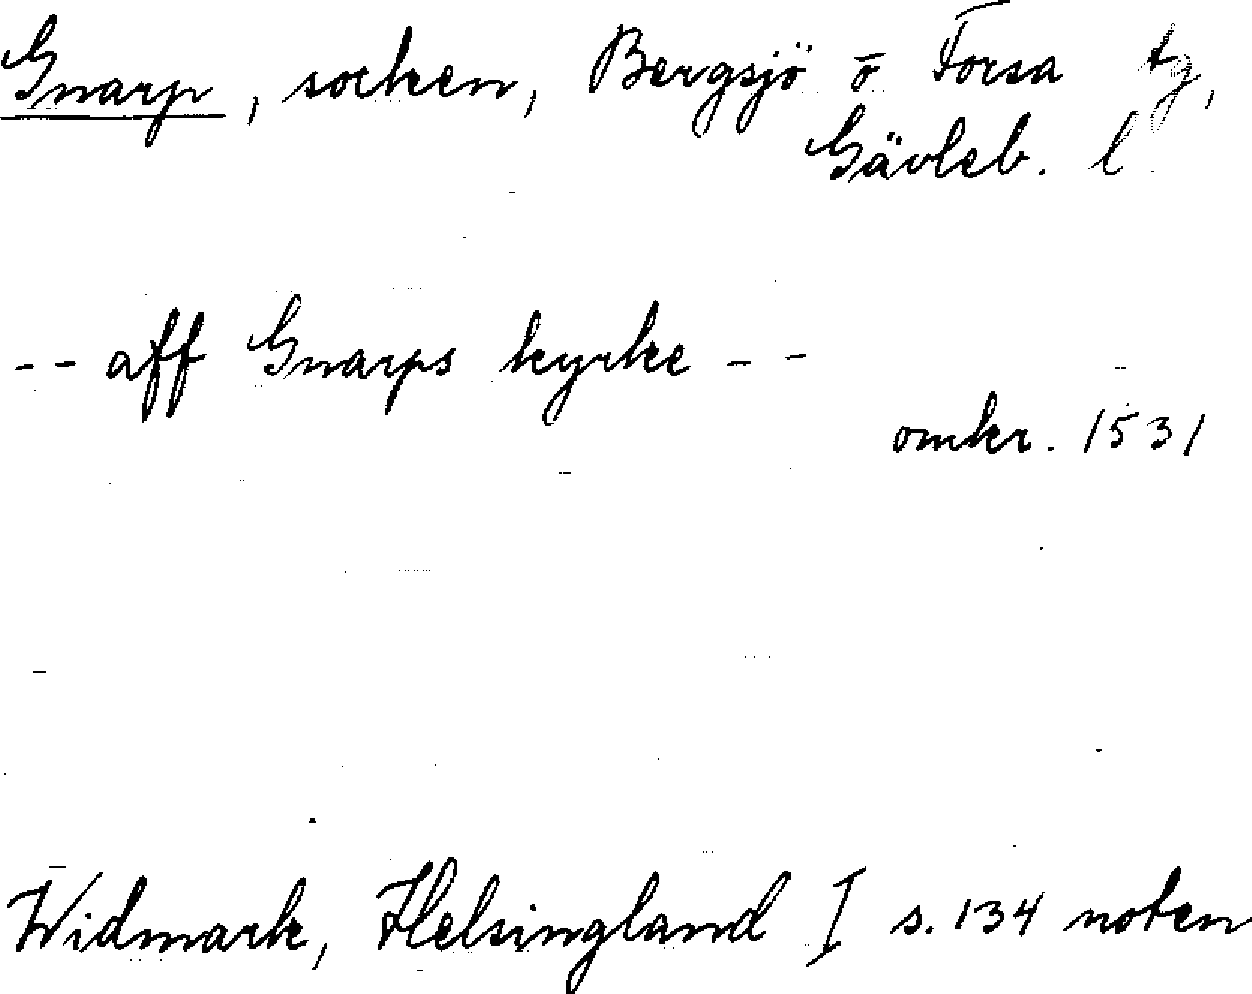 Gnarp, socken, Bergsjö o Forsa tg,
Gävleb. l
-- aff Gnarps kyrke --
omkr. 1531
Widmark, Helsingland I s. 134 noten